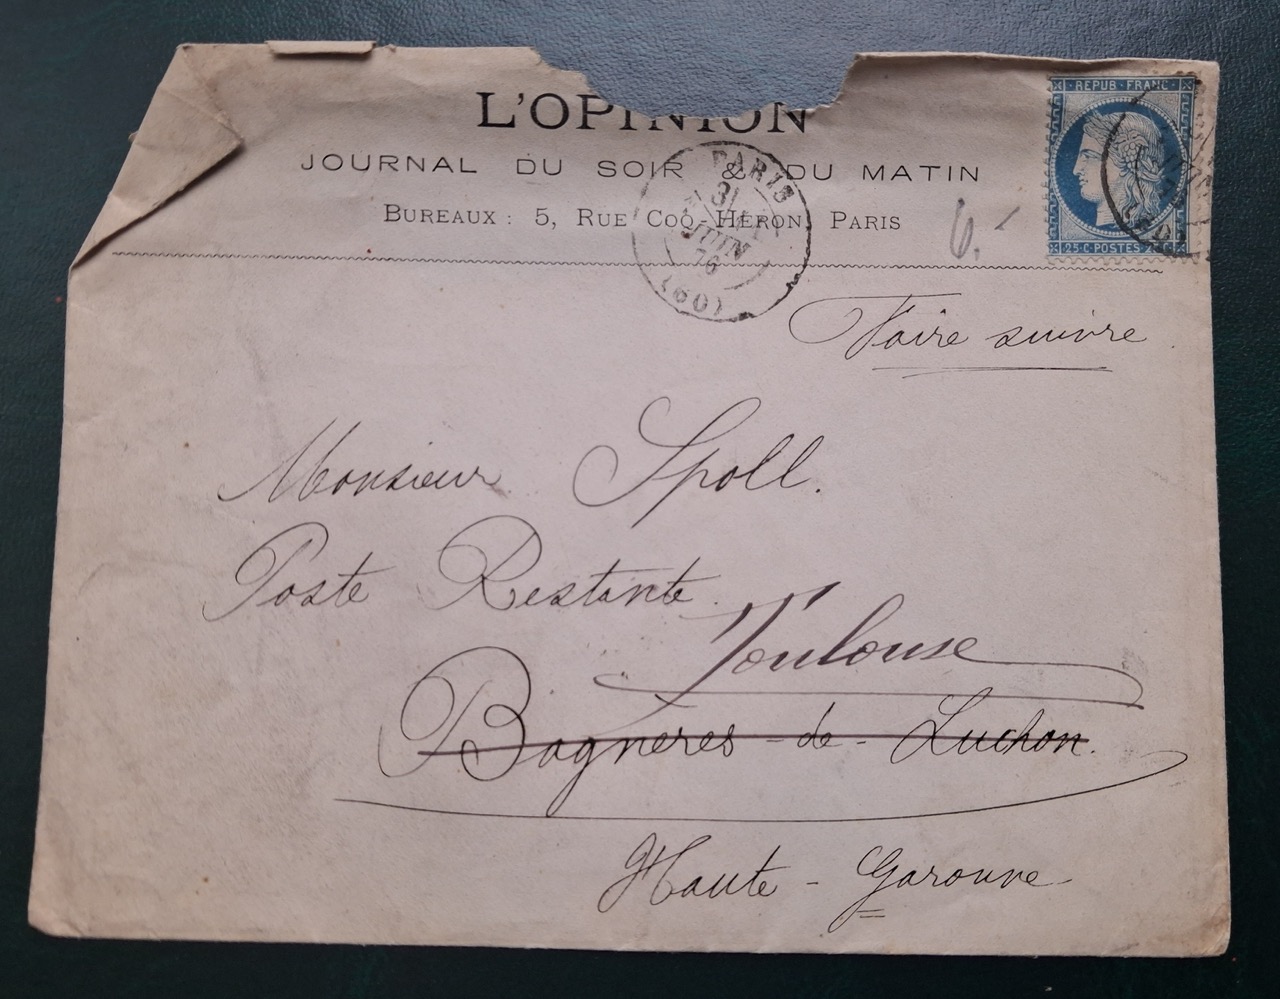 L'OPINION
JOURNAL DU SOIR & DU MATIN
BUREAUX : 5, RUE COQ-HÉRON, PARIS
REPUB·FRANC·
25·C·POSTES·25·C·
PARIS
JUIN
76
(60)
6.-
Faire suivre
Monsieur Spoll.
Poste Restante.
Toulouse
Bagneres-de-Luchon.
Haute-Garonne